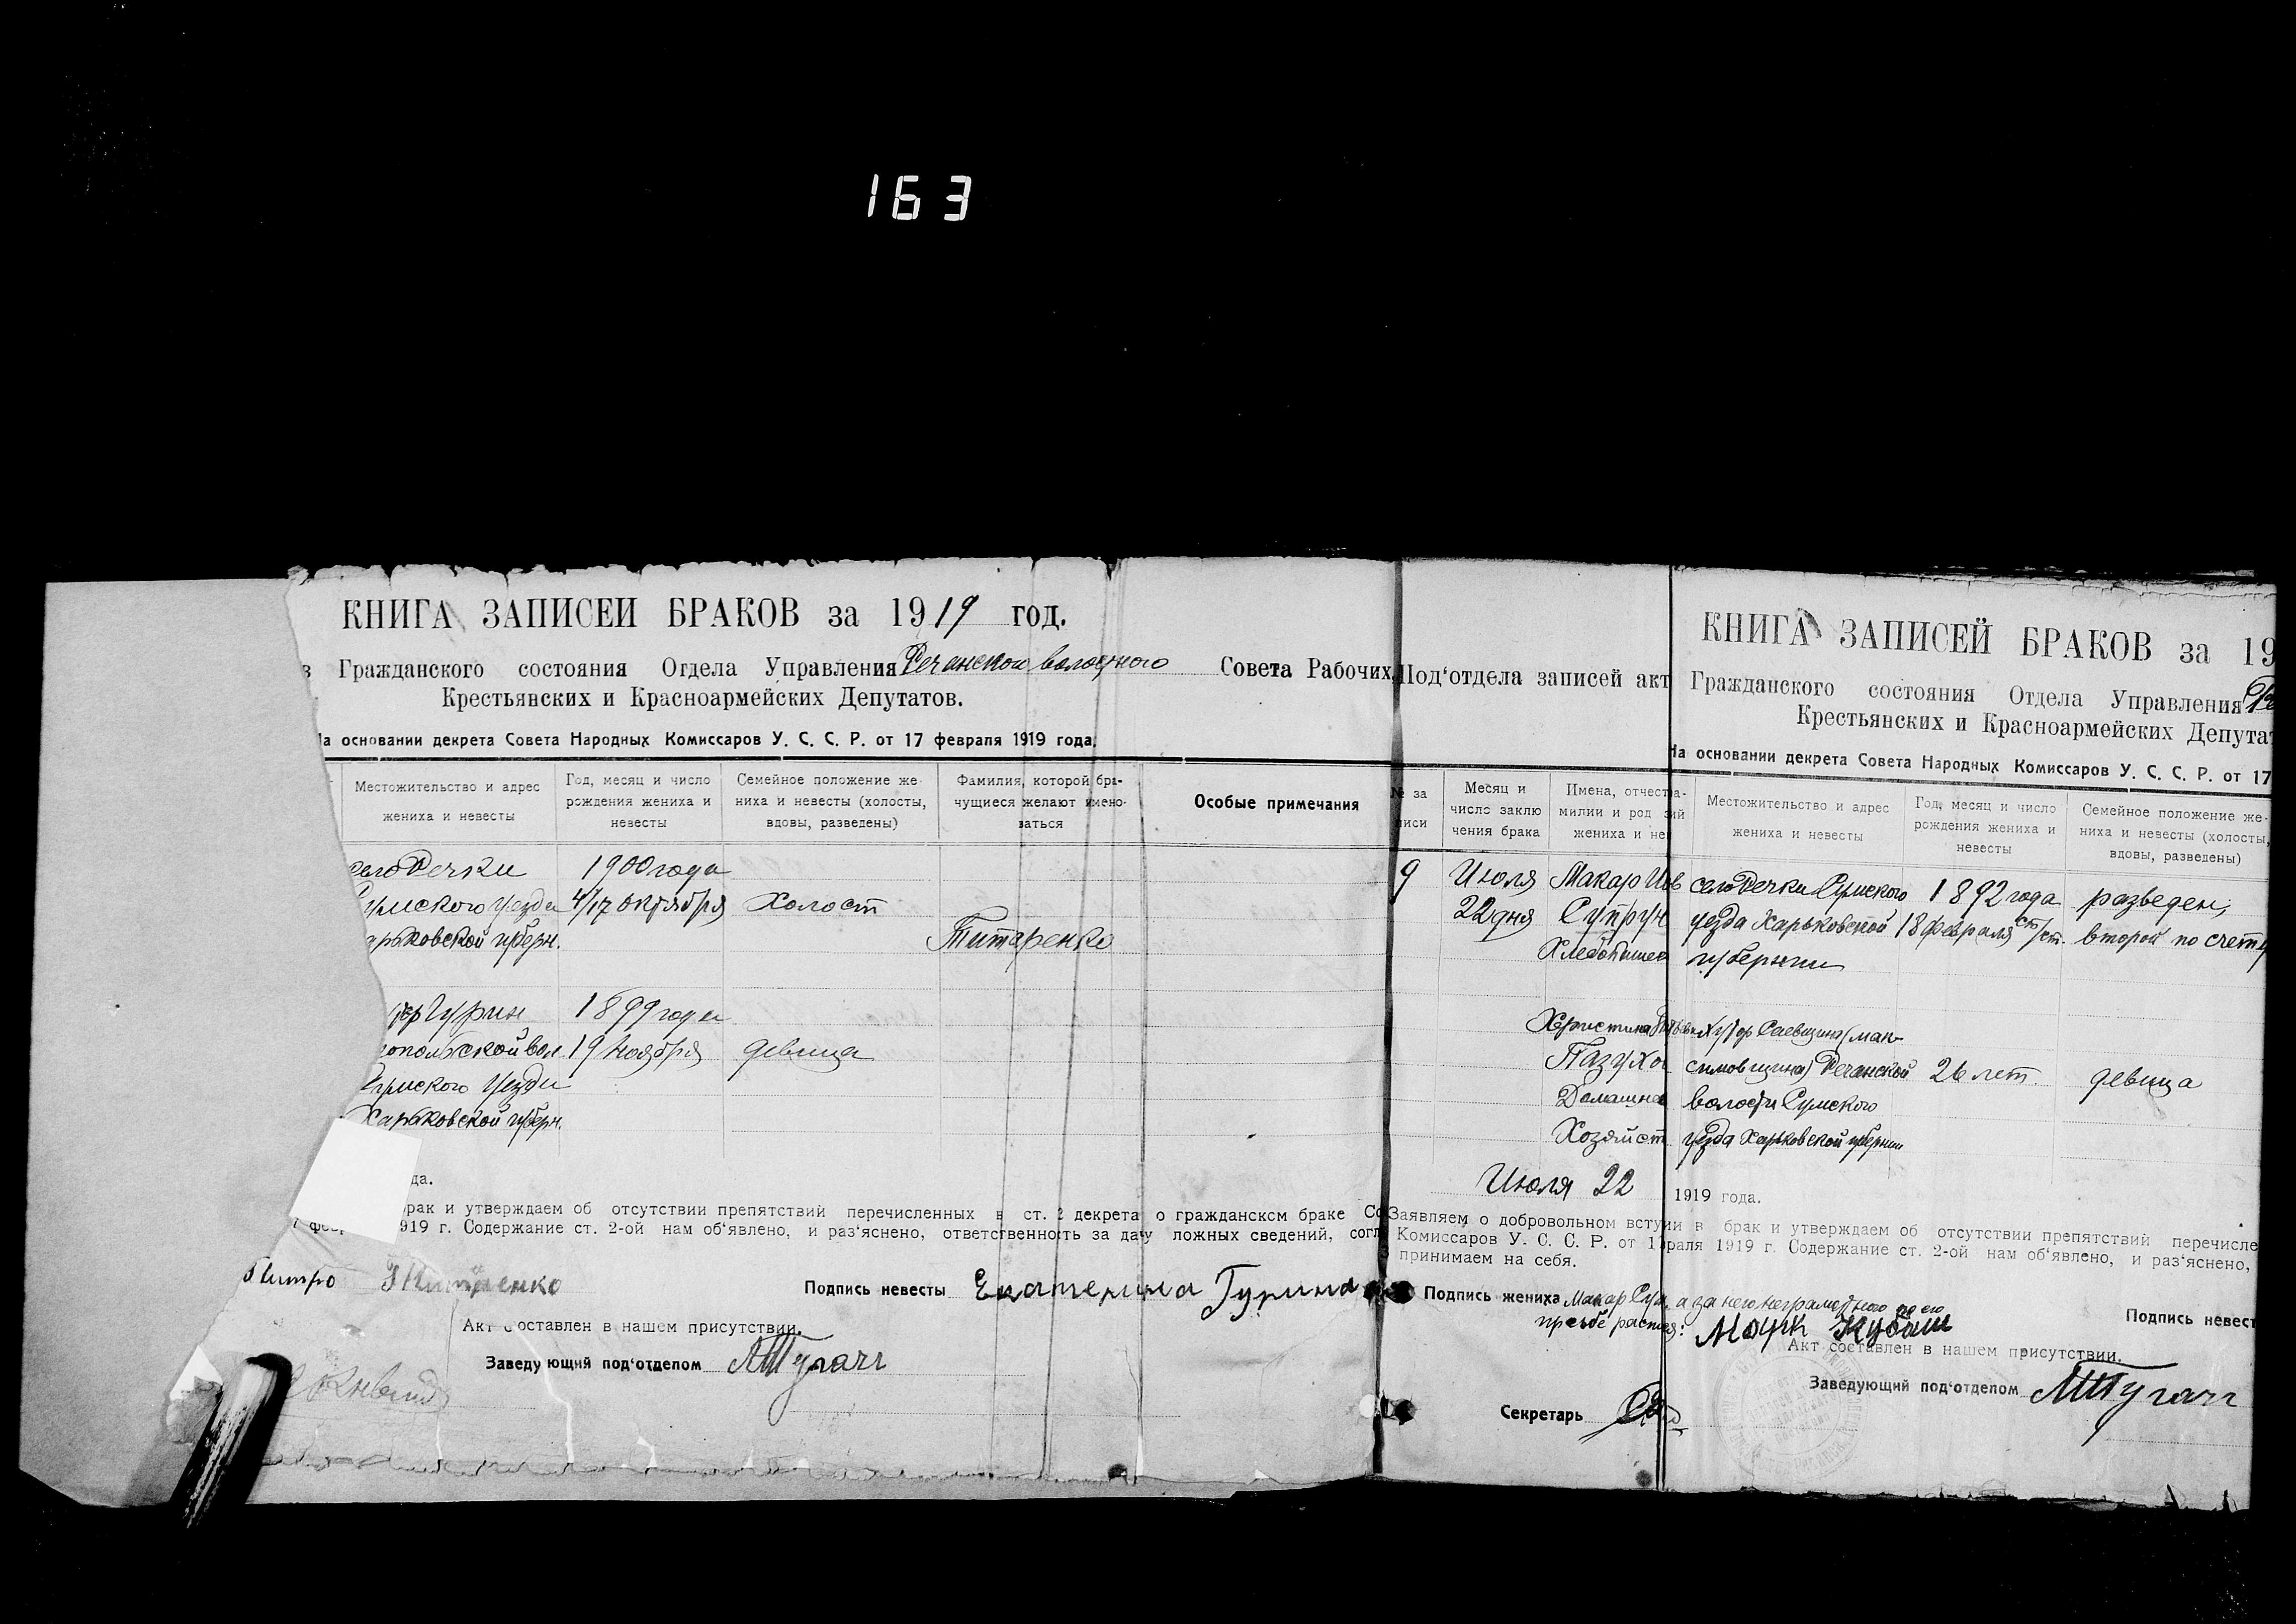 163
КНИГА ЗАПИСЕЙ БРАКОВ за 1919 год.
в Гражданского состояния Отдела Управления Речанского волостного Совета Рабочих,
Крестьянских и Красноармейских Депутатов.
На основании декрета Совета Народных Комиссаров У. С. С. Р. от 17 февраля 1919 года.
Местожительство и адрес жениха и невесты
Год, месяц и число рождения жениха и невесты
Семейное положение жениха и невесты (холосты, вдовы, разведены)
Фамилия, которой брачущиеся желают именоваться
Особые примечания
село Речки 1900 года
Сумского уезда 4/17 октября Холост
Харьковской губерн. Титаренко
Гурин 1899 года
вол. 19 ноября девица
Сумского уезда
Харьковской губерн.
да.
брак и утверждаем об отсутствии препятствий перечисленных в ст. 2 декрета о гражданском браке Со
1919 г. Содержание ст. 2-ой нам об‘явлено, и раз‘яснено, ответственность за дачу ложных сведений, согл
Титаренко Подпись невесты Екатерина Гурина
Акт составлен в нашем присутствии.
Заведующий под‘отделом
КНИГА ЗАПИСЕЙ БРАКОВ за 19
Под‘отдела записей акт Гражданского состояния Отдела Управления
Крестьянских и Красноармейских Депутат
На основании декрета Совета Народных Комиссаров У. С. С. Р. от 17
№ за писи
Месяц и число заклю чения брака
Имена, отчества милии и род зий жениха и нев
Местожительство и адрес жениха и невесты
Год, месяц и число рождения жениха и невесты
Семейное положение жениха и невесты (холосты, вдовы, разведены)
9 Июля Макар село Речки Сумского 1892 года разведен,
22 дня Супрун уезда Харьковской 18 февраля ст/ст. второй по счету
губернии
Христина хутор (мак-
симовщина) Речанской 26 лет. девица
Домашнее волости Сумского
Хозяйст уезда Харьковской губернии
Июля 22 1919 года.
Заявляем о добровольном вступ ии в брак и утверждаем об отсутствии препятствий перечисле
Комиссаров У. С. С. Р. от 1 раля 1919 г. Содержание ст. 2-ой нам об‘явлено, и раз‘яснено,
принимаем на себя.
Подпись жениха Макар а за него неграмотного по его Подпись невест
прозьбе
Акт составлен в нашем присутствии.
Заведующий под‘отделом
Секретарь